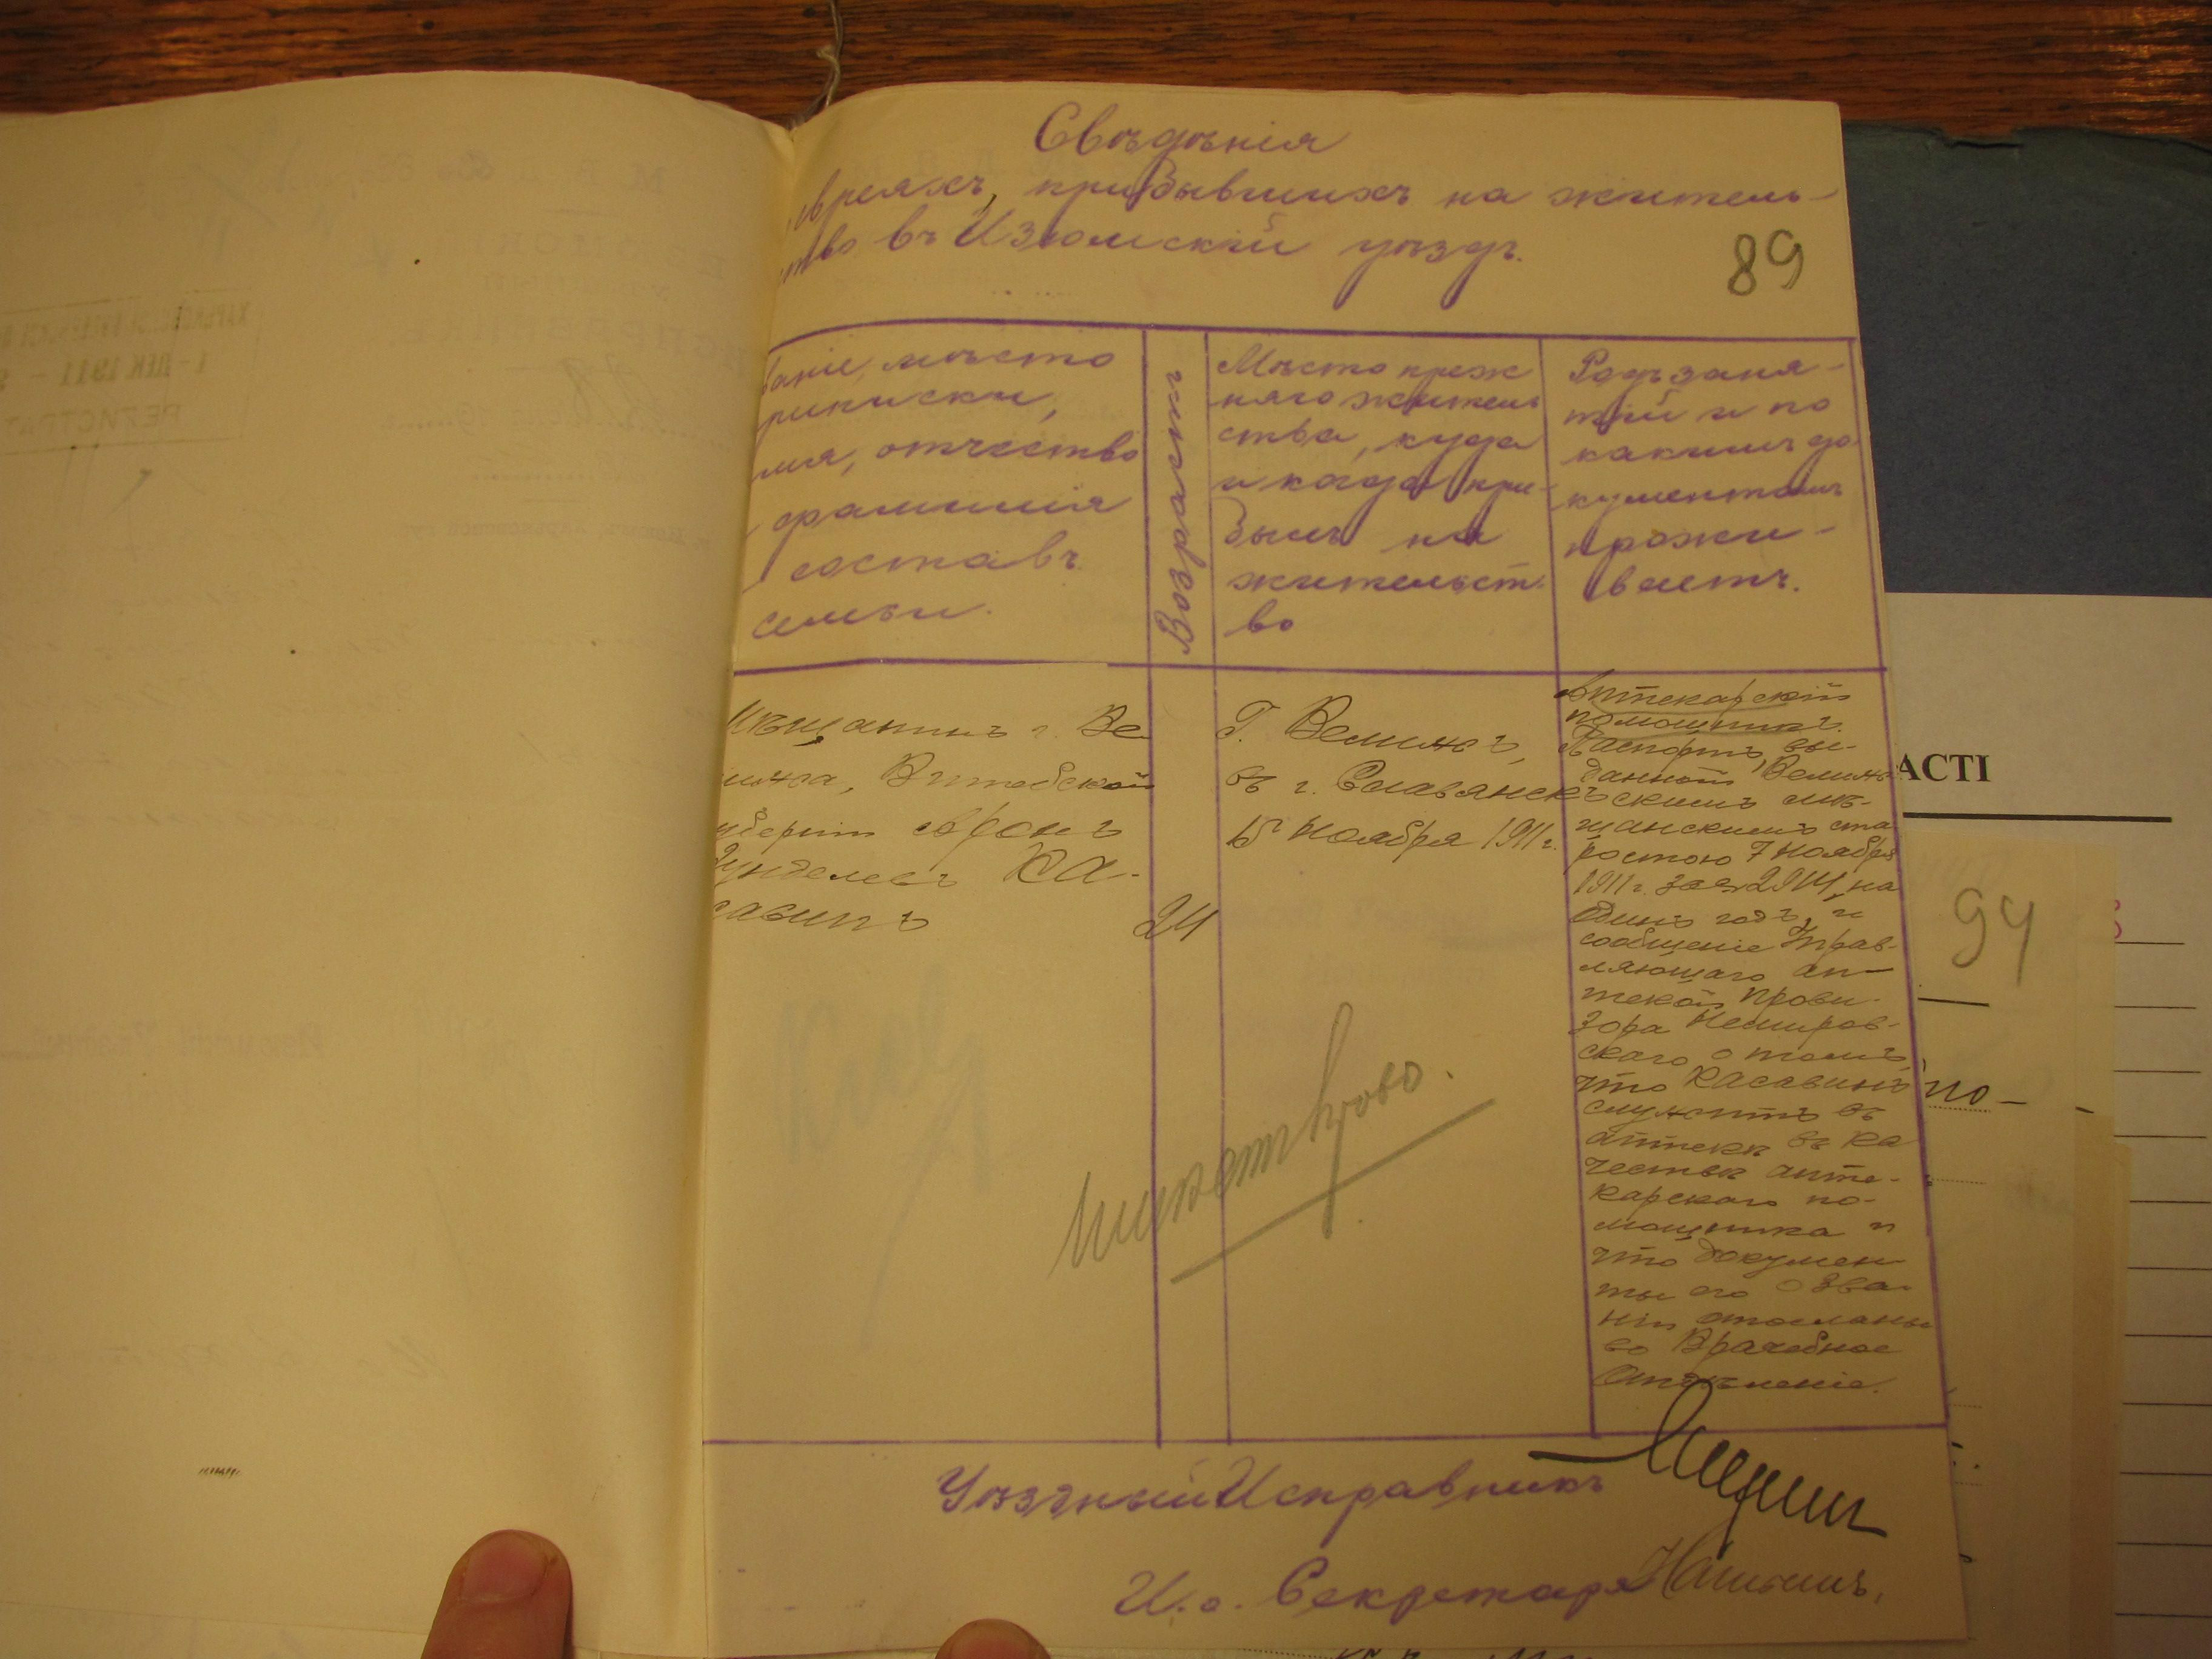 Свѣдѣнія
евреяхъ, прибывшихъ на житель-
ство въ Изюмскій уѣздъ.
89
званіе, мѣсто
приписки,
имя, отчество
фамилія
составъ
семьи.
Возрастъ
Мѣсто преж
няго житель
ства, куда
и когда при-
былъ на
жительст-
во
Родъ заня-
тій и по
какимъ до
кументамъ
прожи-
ваетъ.
Мѣщанинъ г. Ве
лижа, Витебской
губерніи Аронъ
Ка-
савинъ
24
Г. Велижъ,
въ г. Славянскъ
15 Ноября 1911 г.
Аптекарскій
помощникъ.
Паспортъ, вы-
данный Велиж
скимъ мѣ-
щанскимъ ста
ростою 7 Ноября
1911 г. за № 2914, на
одинъ годъ, и
сообщеніе Управ-
ляющаго ап-
текой прови-
зора Немиров-
скаго о томъ,
что Касавинъ
служитъ въ
аптекѣ въ ка
чествѣ апте-
карскаго по-
мощника и
что докумен
ты его о зва-
ніи отосланы
во Врачебное
Отдѣленіе.
Уѣздный Исправникъ
И.о. Секретаря
АСТІ
94
но-
ХАРЬКОВСК
1 - ДЕК 1911
РЕГИСТРАТ